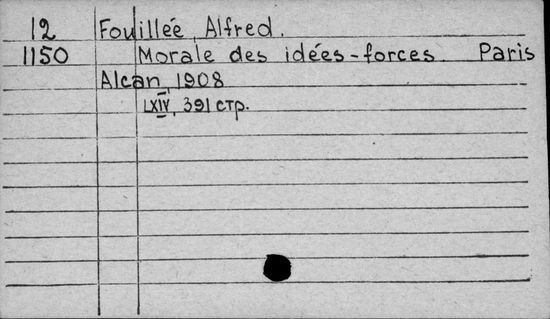 12 Fouillée, Alfred.
1150 Morale des idées-forces. Paris
Alcan, 1908
LXIV, 391 стр.